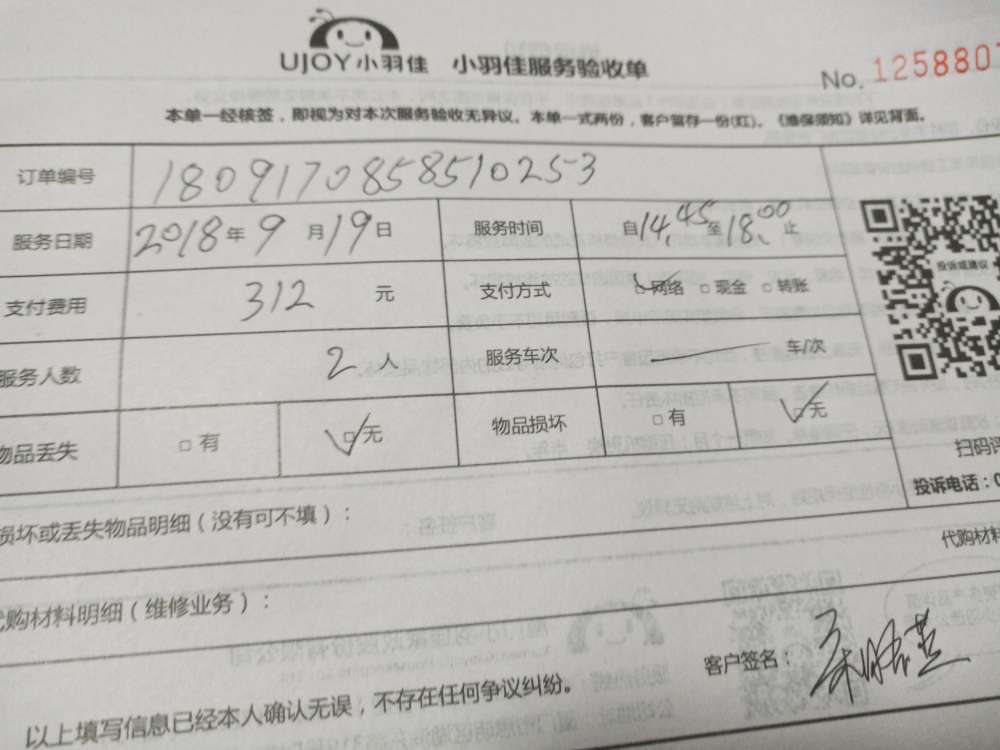 UJOY小羽佳 小羽佳服务验收单
No. 1258807
本单一经核签，即视为对本次服务验收无异议。本单一式两份，客户留存一份(红)。《维保须知》详见背面。
订单编号 1809170858510253
服务日期 2018年9月19日 服务时间 自14.45至18.00止
支付费用 312 元 支付方式 □网络 □现金 □转账
服务人数 2 人 服务车次 车/次
物品丢失 □有 □无 物品损坏 □有 □无
投诉或建议
扫码评
投诉电话：0
损坏或丢失物品明细（没有可不填）：
代购材料
代购材料明细（维修业务）：
客户签名：
以上填写信息已经本人确认无误，不存在任何争议纠纷。